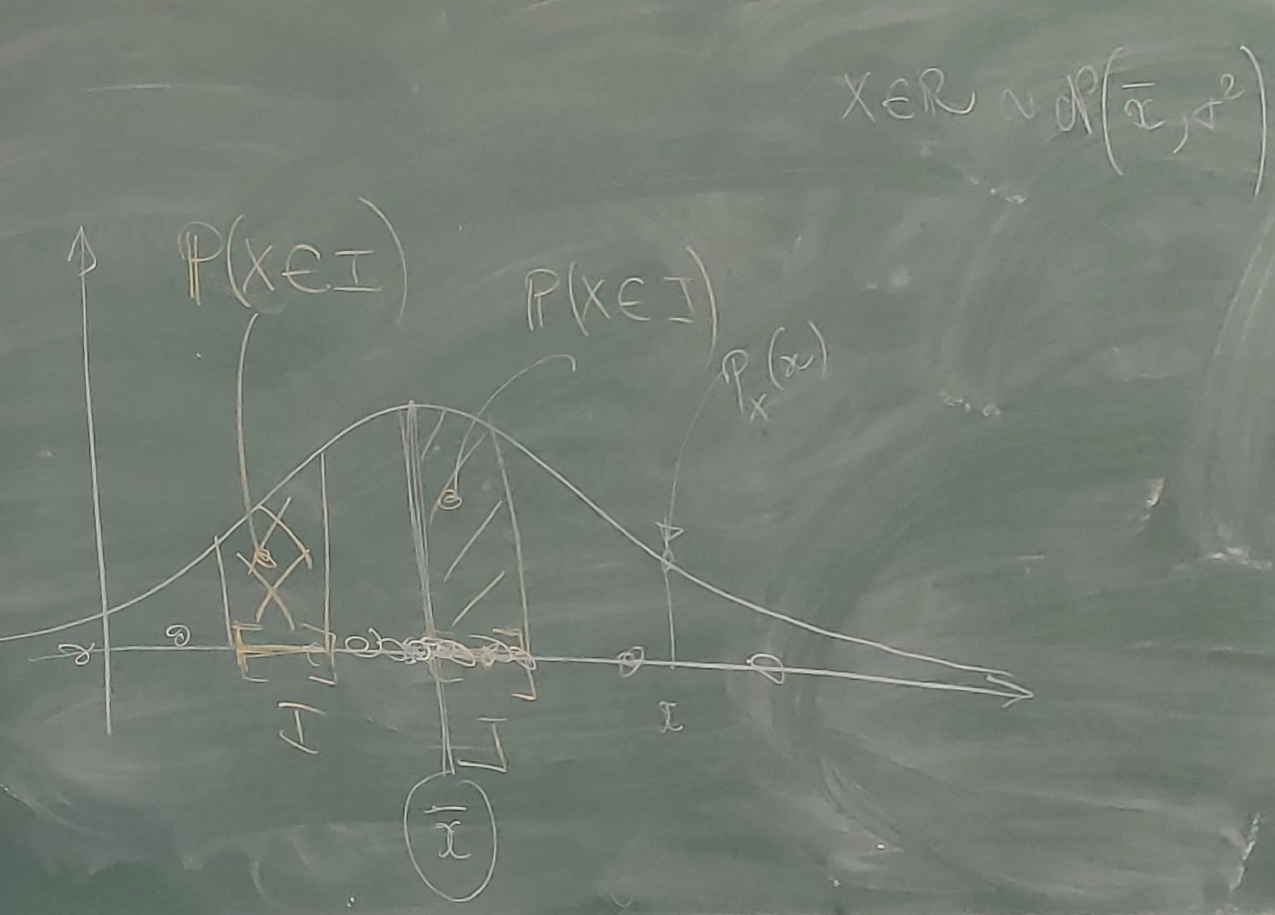 X∈ℝ ~ 𝒩(x̄, σ²)
ℙ(X∈I)
ℙ(X∈J)
p_X(x)
I
J
x
x̄